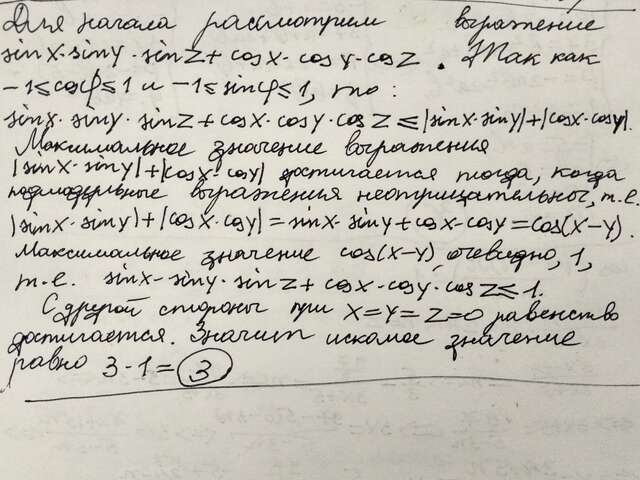 Для начала рассмотрим выражение
sinx·siny·sinz + cosx·cosy·cosz. Так как
-1≤cosφ≤1 и -1≤sinφ≤1, то:
sinx·siny·sinz + cosx·cosy·cosz ≤ |sinx·siny|+|cosx·cosy|.
Максимальное значение выражения
|sinx·siny|+|cosx·cosy| достигается тогда, когда
подмодульные выражения неотрицательны, т.е.
|sinx·siny|+|cosx·cosy|=sinx·siny+cosx·cosy=cos(x-y).
Максимальное значение cos(x-y), очевидно, 1,
т.е. sinx·siny·sinz + cosx·cosy·cosz≤1.
С другой стороны при x=y=z=0 равенство
достигается. Значит искомое значение
равно 3·1=3